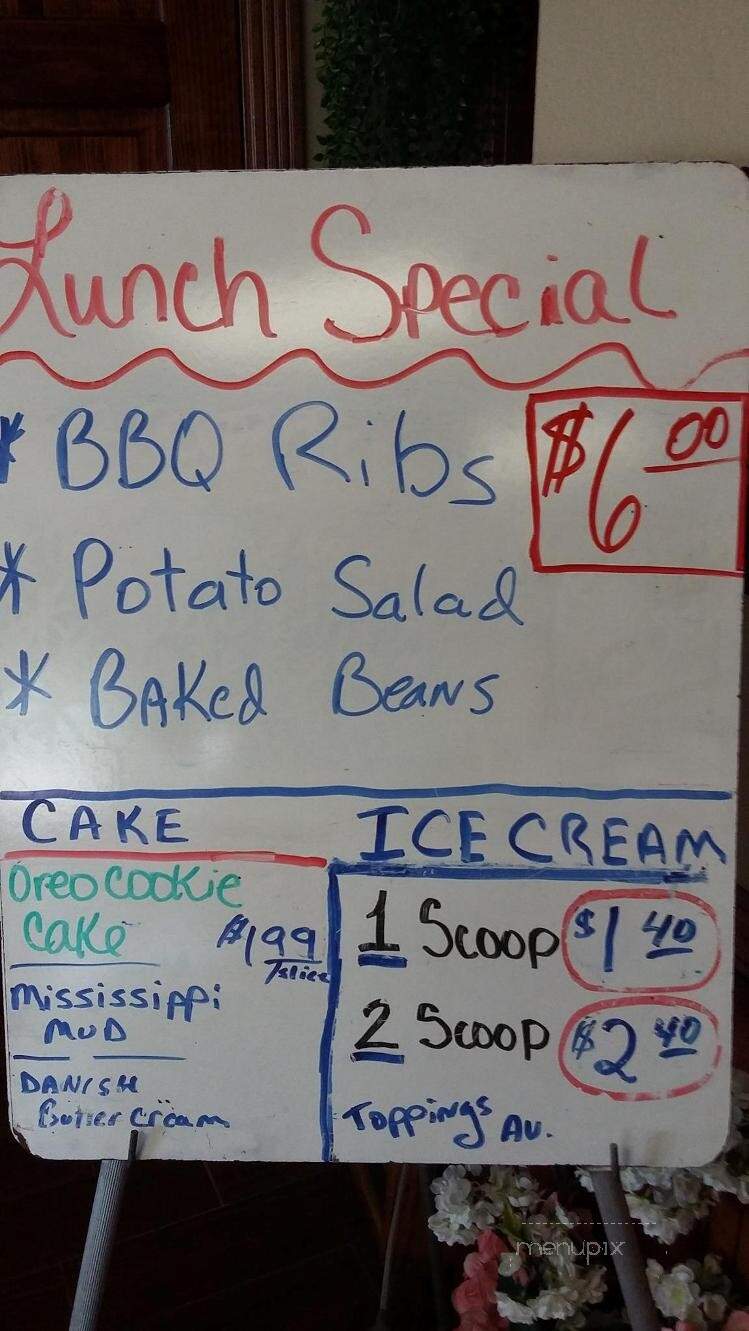 Lunch Special
* BBQ Ribs
$6.00
* Potato Salad
* Baked Beans
CAKE
Oreo Cookie
Cake
$1.99
/slice
Mississippi
MUD
DANISH
Butter cream
ICE CREAM
1 Scoop $1.40
2 Scoop $2.40
Toppings Av.
menupix